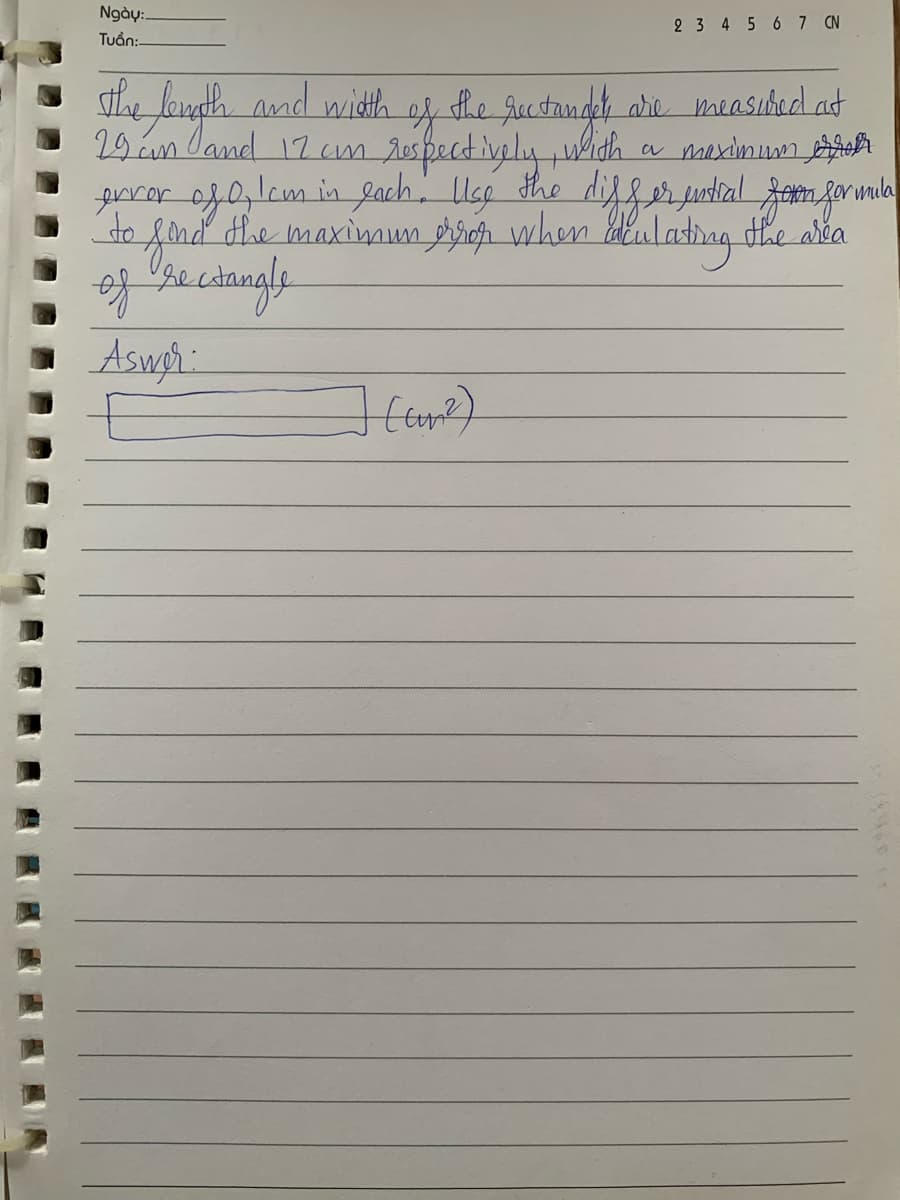 Ngày:
Tuần:
2 3 4 5 6 7 CN
The length and width of the rectangle are measured at
29 cm and 12 cm respectively, with a maximum error
error of 0,1cm in each. Use the differential form formula
to find the maximun error when calculating the area
of rectangle
Aswer:
(cm²)